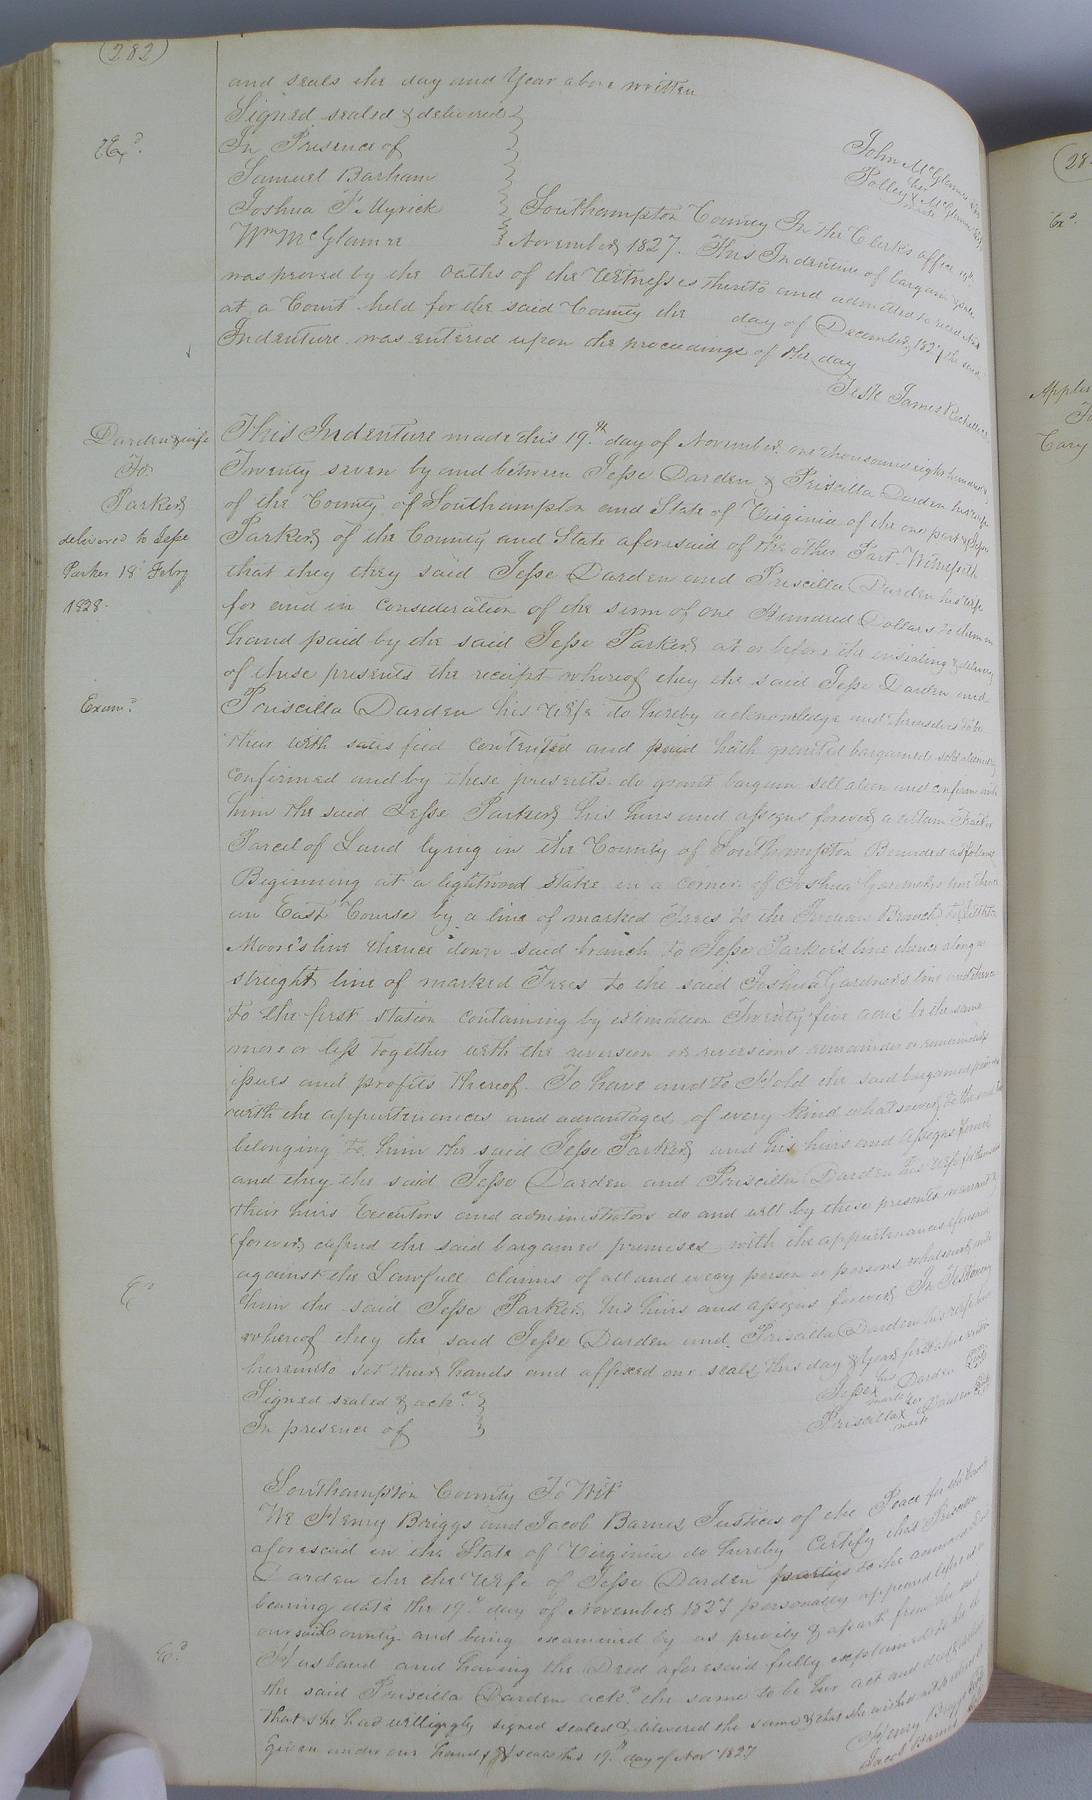 (282)
and seals the day and Year above written
Signed sealed & delivered
Exd.
In Presence of
Samuel Barham
Joshua F. Myrick
Wm McGlamre
John McGlamre
Polley her X mark McGlamre
Southampton County In the Clerk's office
November 1827. This Indenture of bargain & sale
was proved by the oaths of the Witnesses thereto and admitted to record And
at a Court held for the said County the day of December 1827 the said
Indenture was entered upon the proceedings of the day
Teste James Rochelle
Darden & wife
To
Parker
delivered to Jesse
Parker 18 Feby
1828.
Examd.
This Indenture made this 19th day of November one thousand eight hundred &
Twenty seven by and between Jesse Darden & Priscilla Darden his wife
of the County of Southampton and State of Virginia of the one part & Jesse
Parker of the County and State aforesaid of the other Part. Witnesseth
that they they said Jesse Darden and Priscilla Darden his wife
for and in consideration of the sum of one Hundred Dollars to them in
hand paid by the said Jesse Parker at or before the ensealing & delivery
of these presents the receipt whereof they the said Jesse Darden and
Priscilla Darden his Wife do hereby acknowledge and themselves to be
ther with satisfied contented and paid hath granted bargained sold aliened
confirmed and by these presents do grant bargain sell alien and confirm unto
him the said Jesse Parker his heirs and assigns forever a certain Tract or
Parcel of Land lying in the County of Southampton Bounded as follows
Beginning at a lightwood stake in a corner of Joshua Gardner's line thence
an East Course by a line of marked Trees to the Branch to
Moore's line thence down said branch to Jesse Parker's line thence along a
streight line of marked Trees to the said Joshua Gardner's line and thence
to the first station containing by estimation Twenty five acres be the same
more or less together with the reversion or reversions remainder or remainders
issues and profits thereof. To have and to Hold the said bargained premises
with the appurtenances and advantages of every kind whatsoever
belonging to him the said Jesse Parker and his heirs and assigns forever
and they the said Jesse Darden and Priscilla Darden his wife for themselves
their heirs Executors and administrators do and will by these presents warrant &
forever defend the said bargained premises with the appurtenances aforesaid
against the Lawfull claims of all and every person or persons whatsoever unto
him the said Jesse Parker his heirs and assigns forever In Testimony
whereof they the said Jesse Darden and Priscilla Darden his wife have
hereunto set their hands and affixed our seals this day & Year first above written
Signed sealed & ackd.
In presence of
Jesse his X mark Darden
Priscilla her X mark Darden
Southampton County To Wit
We Henry Briggs and Jacob Barnes Justices of the Peace for the County
aforesaid in the State of Virginia do hereby certify that Priscilla
Darden the the Wife of Jesse Darden parties to the annexed
bearing date the 19th day of November 1827 personally appeared before us in
our said County and being examined by us privily & apart from her said
Husband and having the Deed aforesaid fully explained to her
the said Priscilla Darden ackd. the same to be her act and deed &
that she had willingly signed sealed & delivered the same & that she wished not to retract
Given under our hands & seals this 19th day of Nov 1827
Henry Briggs
Jacob Barnes